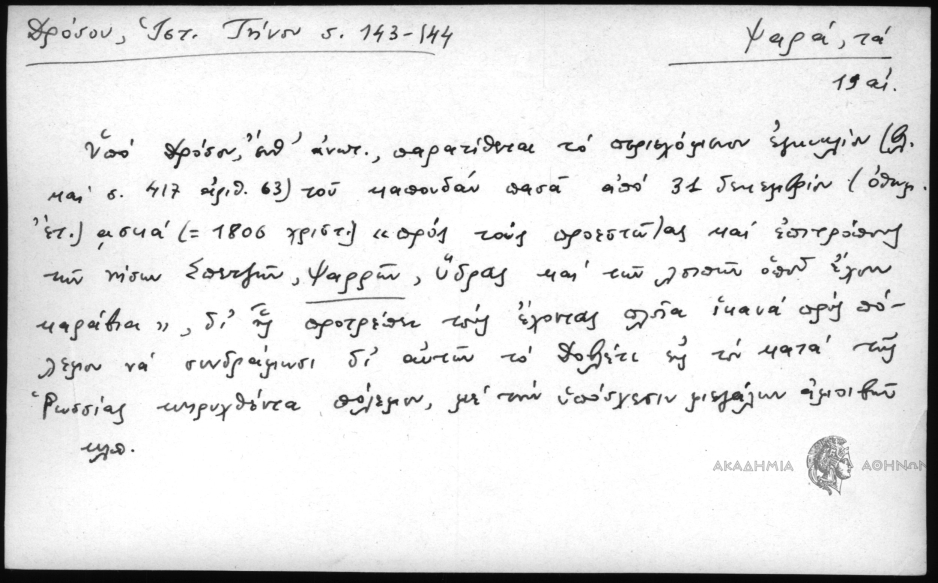 Δρόσου, Ἱστ. Τήνου σ. 143-144
Ψαρά, τά
19 αἰ.
Ὑπό Δρόσου, ἔνθ' ἀνωτ., παρατίθεται τό περιεχόμενον ἐγκυκλίου (βλ.
καί σ. 417 ἀριθ. 63) τοῦ καπουδάν πασᾶ ἀπό 31 δεκεμβρίου (ὀθωμ.
ἔτ.) ασκά (= 1806 χριστ.) «πρός τούς προεστῶτας καί ἐπιτρόπους
τῶν νήσων Σπετζῶν, Ψαρρῶν, Ὕδρας καί τῶν λοιπῶν ὁποῦ ἔχουν
καράβια», δι' ἧς προτρέπει τούς ἔχοντας πλοῖα ἱκανά πρός πό-
λεμον νά συνδράμωσι δι' αὐτῶν τό Δοβλέτι εἰς τόν κατά τῆς
Ῥωσσίας κηρυχθέντα πόλεμον, μέ τήν ὑπόσχεσιν μεγάλων ἀμοιβῶν
κλπ.
ΑΚΑΔΗΜΙΑ ΑΘΗΝΩΝ